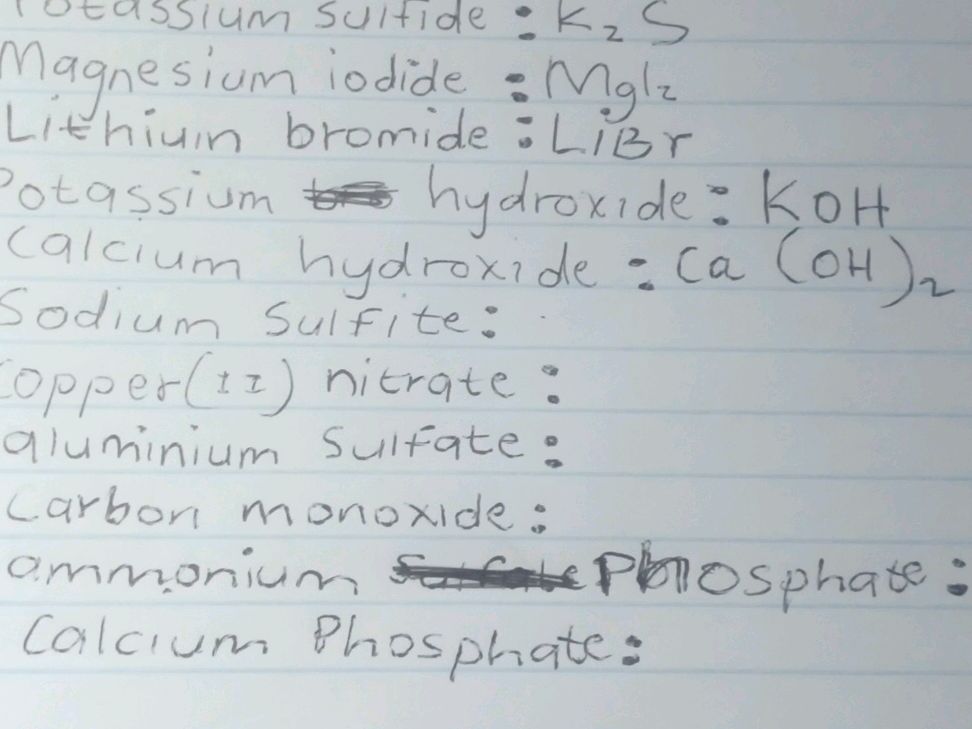 Potassium sulfide : K₂S
Magnesium iodide : MgI₂
Lithium bromide : LiBr
Potassium hydroxide : KOH
Calcium hydroxide : Ca (OH)₂
Sodium Sulfite :
Copper(II) nitrate :
aluminium Sulfate :
Carbon monoxide :
ammonium Phosphate :
Calcium Phosphate :